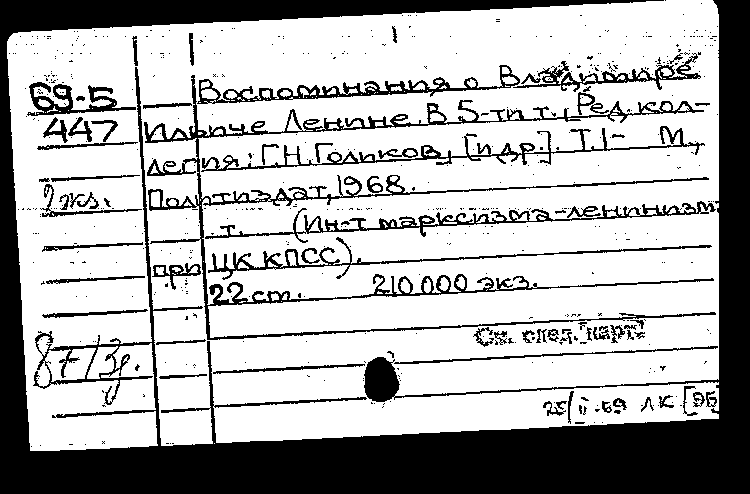 1
69-5 Воспоминания о Владимире
447 Ильиче Ленине. В 5-ти т., Ред. кол-
легия: Г.Н. Голиков, [и др.]. Т.1- М.,
2 экз. Политиздат, 1968.
т. (Ин-т марксизма-ленинизм
при ЦК КПСС).
22 cm. 210.000 экз.
См. след. карт.
25/II-69 ЛК [ЭБ]